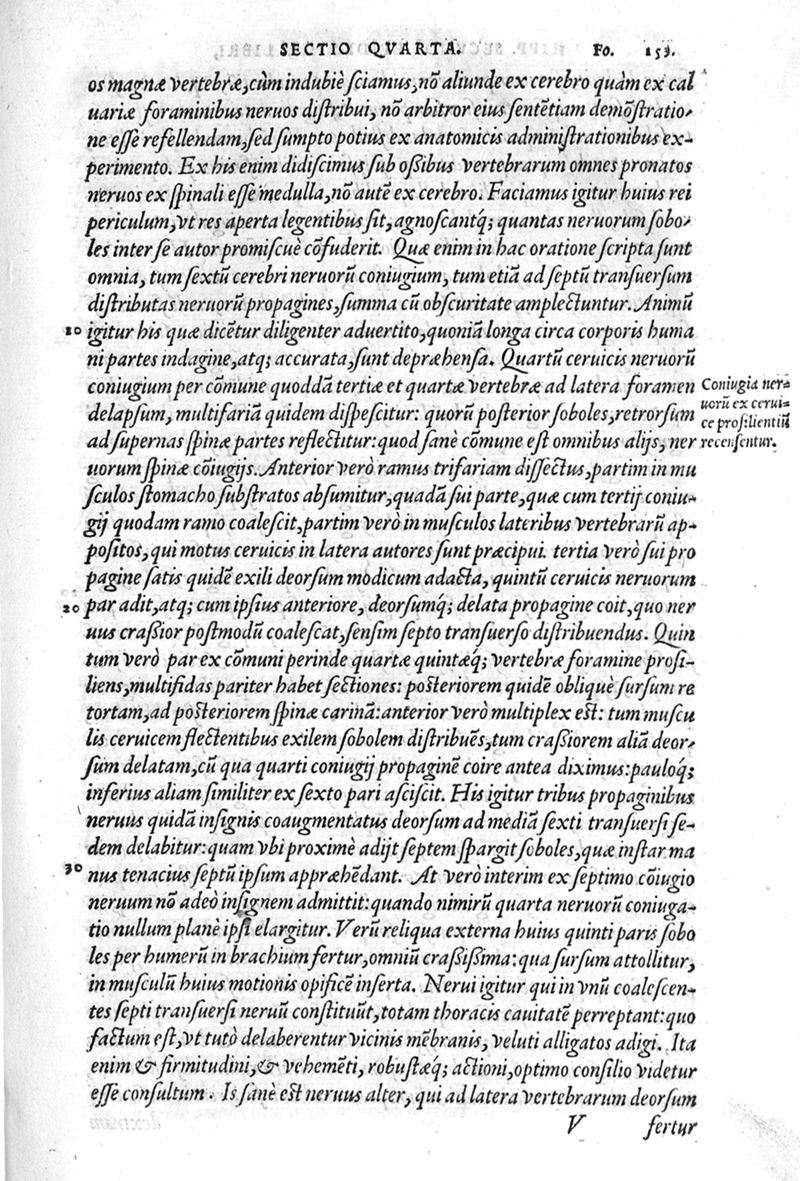 SECTIO QVARTA. Fo. 153.
os magnæ vertebræ, cùm indubiè ſciamus, nō aliunde ex cerebro quàm ex cal
uariæ foraminibus neruos diſtribui, nō arbitror eius ſentētiam demōſtratio-
ne eſſe refellendam, ſed ſumpto potius ex anatomicis adminiſtrationibus ex-
perimento. Ex his enim didiſcimus ſub oſſibus vertebrarum omnes pronatos
neruos ex ſpinali eſſe medulla, nō autē ex cerebro. Faciamus igitur huius rei
periculum, vt res aperta legentibus ſit, agnoſcantq́; quantas neruorum ſobo-
les inter ſe autor promiſcuè cōfuderit. Quæ enim in hac oratione ſcripta ſunt
omnia, tum ſextū cerebri neruorū coniugium, tum etiā ad ſeptū tranſuerſum
diſtributas neruorū propagines, ſumma cū obſcuritate amplectuntur. Animū
10 igitur his quæ dicētur diligenter aduertito, quoniā longa circa corporis huma
ni partes indagine, atq; accurata, ſunt depræhenſa. Quartū ceruicis neruorū
coniugium per cōmune quoddā tertiæ et quartæ vertebræ ad latera foramen
delapſum, multifariā quidem diſpeſcitur: quorū poſterior ſoboles, retrorſum
ad ſupernas ſpinæ partes reflectitur: quod ſanè cōmune eſt omnibus alijs, ner
Coniugia ner-
uorū ex cerui-
ce proſilientiū
recenſentur.
uorum ſpinæ cōiugijs. Anterior verò ramus trifariam diſſectus, partim in mu
ſculos ſtomacho ſubſtratos abſumitur, quadā ſui parte, quæ cum tertij coniu-
gij quodam ramo coaleſcit, partim verò in muſculos lateribus vertebrarū ap-
poſitos, qui motus ceruicis in latera autores ſunt præcipui. tertia verò ſui pro
pagine ſatis quidē exili deorſum modicum adacta, quintū ceruicis neruorum
20 par adit, atq; cum ipſius anteriore, deorſumq́; delata propagine coit, quo ner
uus craſſior poſtmodū coaleſcat, ſenſim ſepto tranſuerſo diſtribuendus. Quin
tum verò par ex cōmuni perinde quartæ quintæq́; vertebræ foramine proſi-
liens, multifidas pariter habet ſectiones: poſteriorem quidē obliquè ſurſum re
tortam, ad poſteriorem ſpinæ carinā: anterior verò multiplex eſt: tum muſcu
lis ceruicem flectentibus exilem ſobolem diſtribuēs, tum craſſiorem aliā deor-
ſum delatam, cū qua quarti coniugij propaginē coire antea diximus: pauloq́;
inferius aliam ſimiliter ex ſexto pari aſciſcit. His igitur tribus propaginibus
neruus quidā inſignis coaugmentatus deorſum ad mediā ſexti tranſuerſi ſe-
dem delabitur: quam vbi proximè adijt ſeptem ſpargit ſoboles, quæ inſtar ma
30 nus tenacius ſeptū ipſum appræhēdant. At verò interim ex ſeptimo cōiugio
neruum nō adeò inſignem admittit: quando nimirū quarta neruorū coniuga-
tio nullum planè ipſi elargitur. Verū reliqua externa huius quinti paris ſobo
les per humerū in brachium fertur, omniū craſſiſſima: qua ſurſum attollitur,
in muſculū huius motionis opificē inſerta. Nerui igitur qui in vnū coaleſcen-
tes ſepti tranſuerſi neruū conſtituūt, totam thoracis cauitatē perreptant: quo
factum eſt, vt tutò delaberentur vicinis mēbranis, veluti alligatos adigi. Ita
enim & firmitudini, & vehemēti, robuſtæq́; actioni, optimo conſilio videtur
eſſe conſultum. Is ſanè eſt neruus alter, qui ad latera vertebrarum deorſum
V fertur